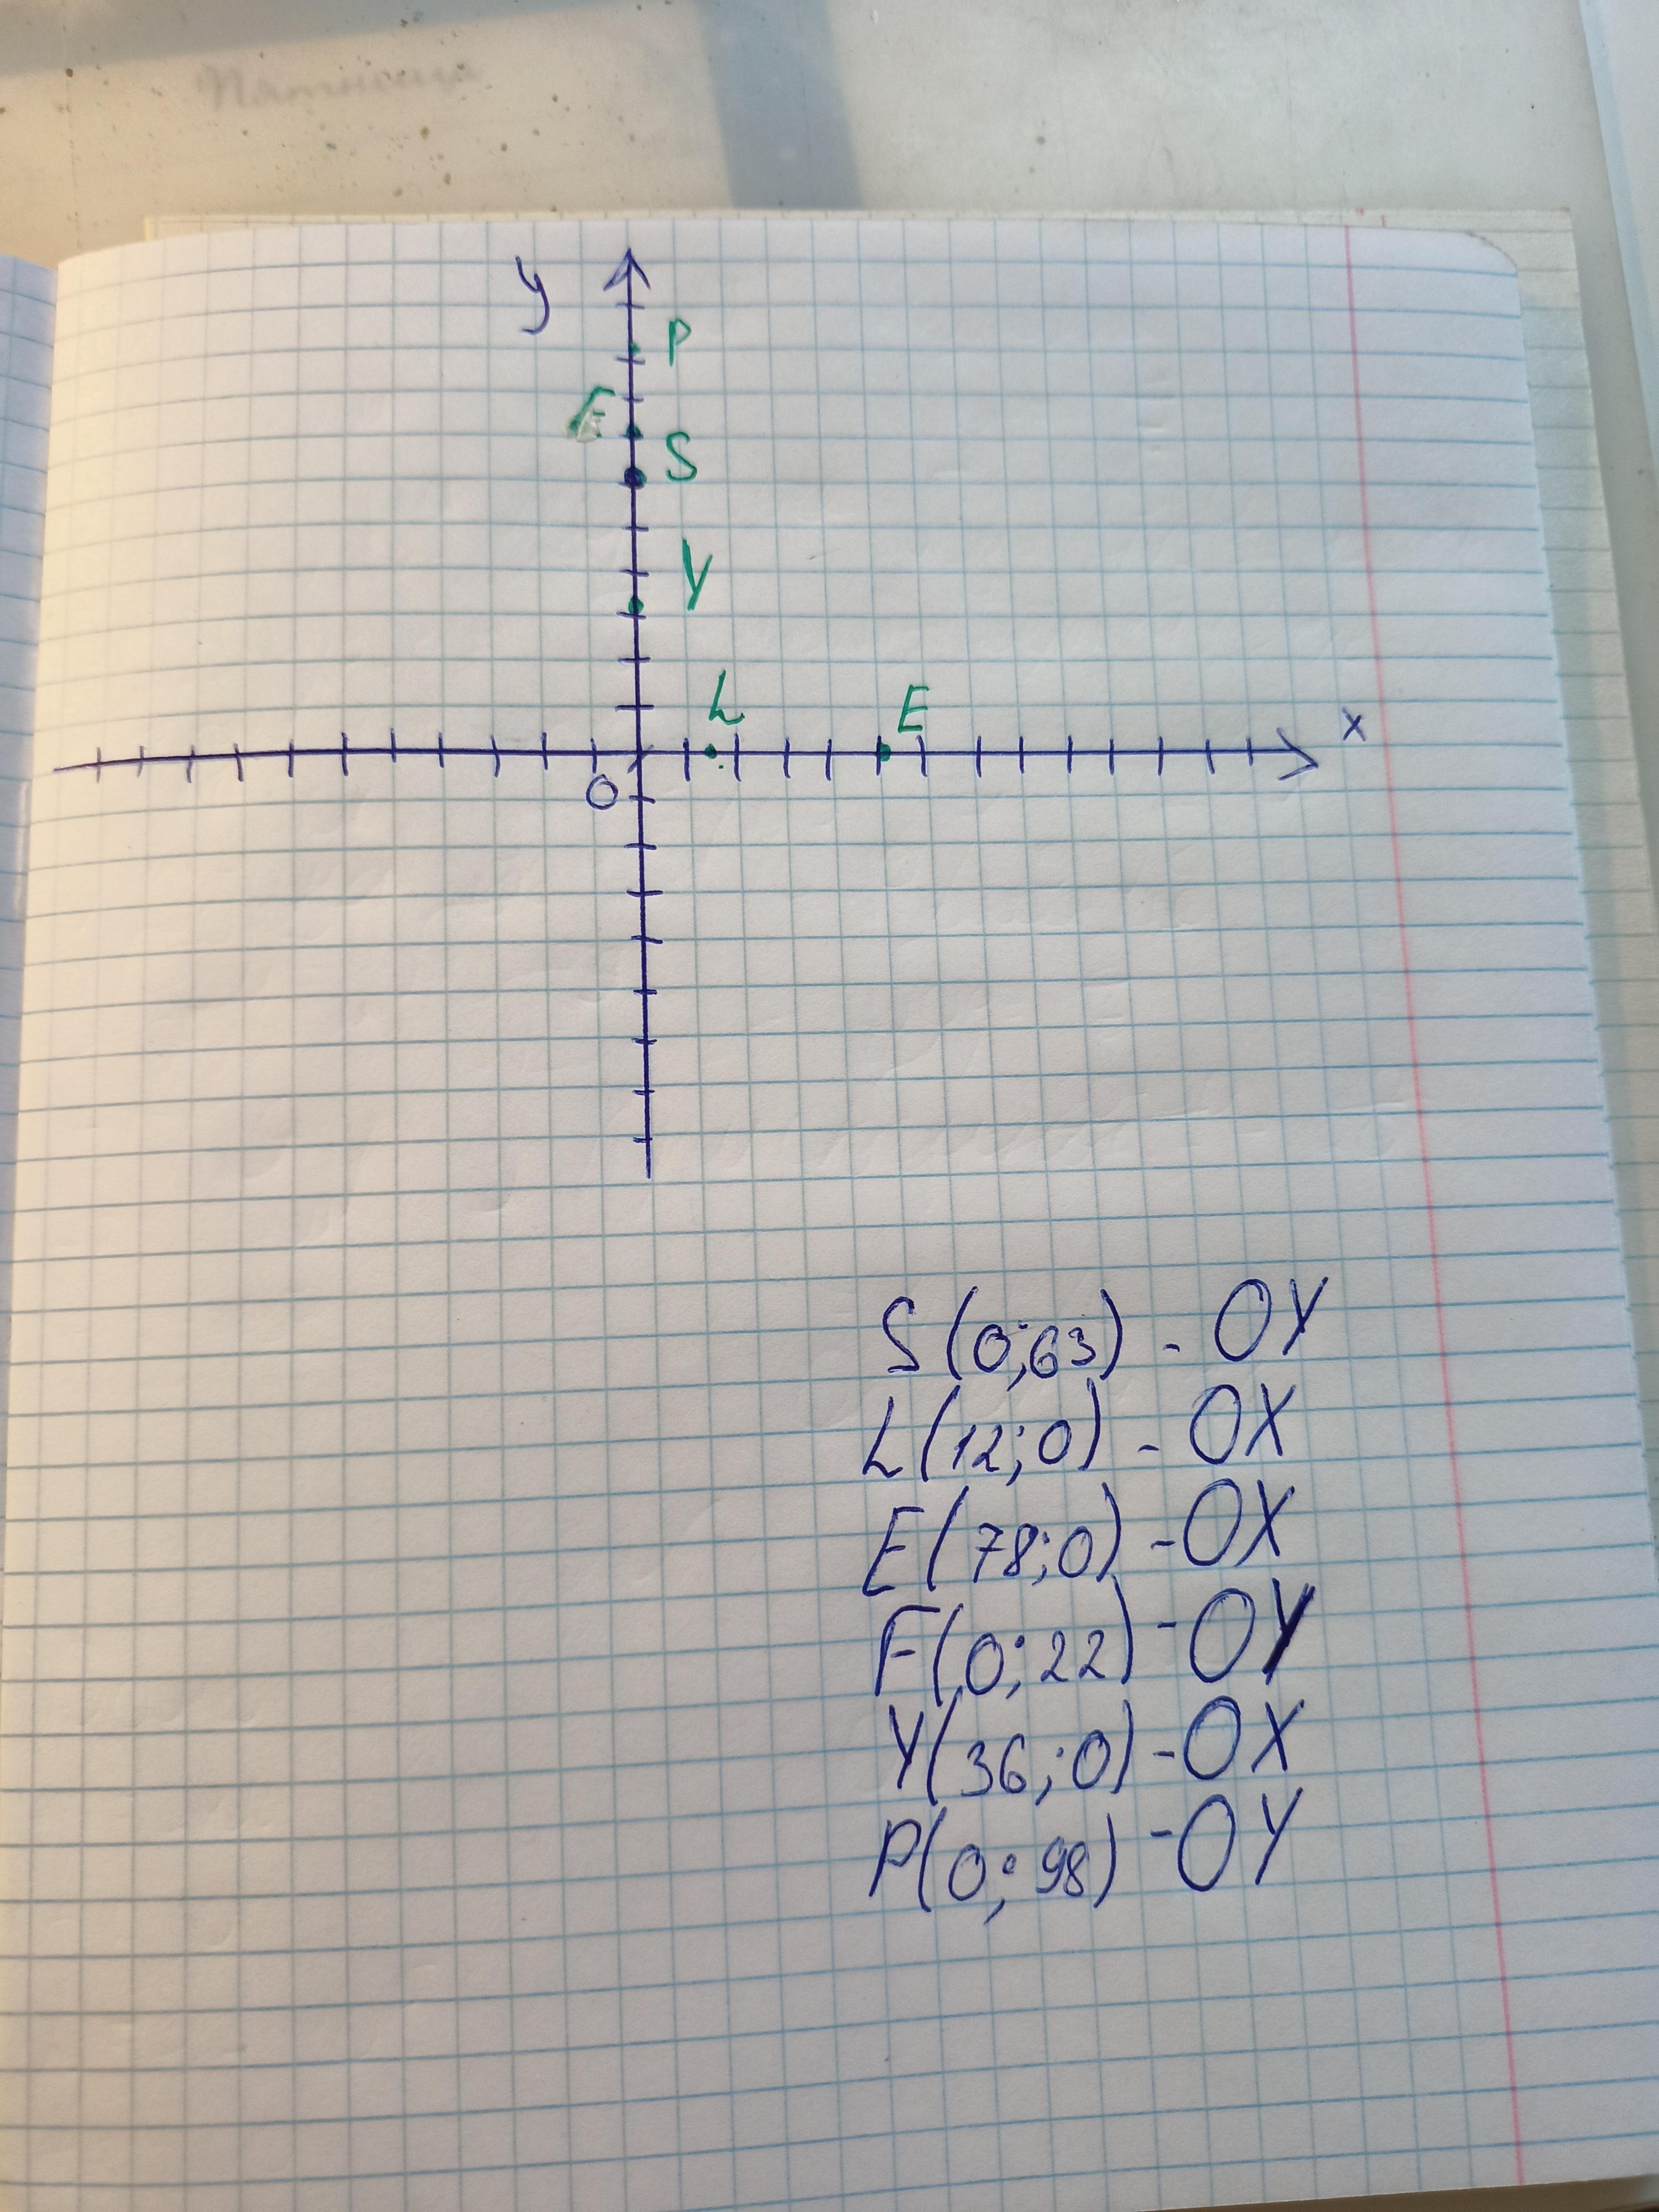 Пятница
y
P
F
S
Y
L
E
x
O
S(0;63) - OY
L(12;0) - OX
E(78;0) - OX
F(0;22) - OY
Y(36;0) - OX
P(0;98) - OY